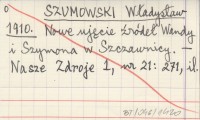 SZUMOWSKI Władysław
1910. Nowe ujęcie źródeł Wandy
i Szymona w Szczawnicy. —
Nasze Zdroje 1, nr 21: 271, il.